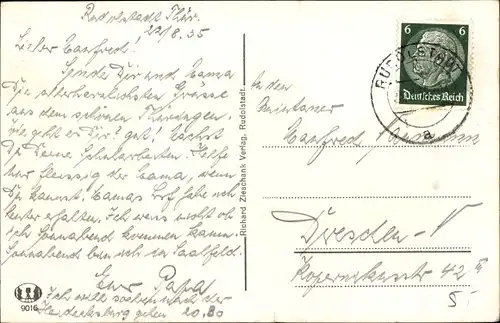 Rudolstadt Thür.
22/8.35
Lieber Manfred!
Sende Dir und Mama
die allerherzlichsten Grüsse
aus dem schönen Thüringen.
Wie geht es Dir? gut! Machst
Du Deine Schularbeiten. Helfe
nur fleissig der Mama, wenn
Du kannst. Mamas Brf habe ich
heute erhalten. Ich weis nicht ob
ich Sonnabend kommen kann.
Sonnabend bin ich in Saalfeld.
Euer Papa
Ich will soeben nach der
Heidecksburg gehen. 20,80
9016
Richard Zieschank Verlag, Rudolstadt.
6 6
Deutsches Reich
RUDOLSTADT
a
An den
Manfred
Dresden-N
Kopernikusstr 42 II
5.-